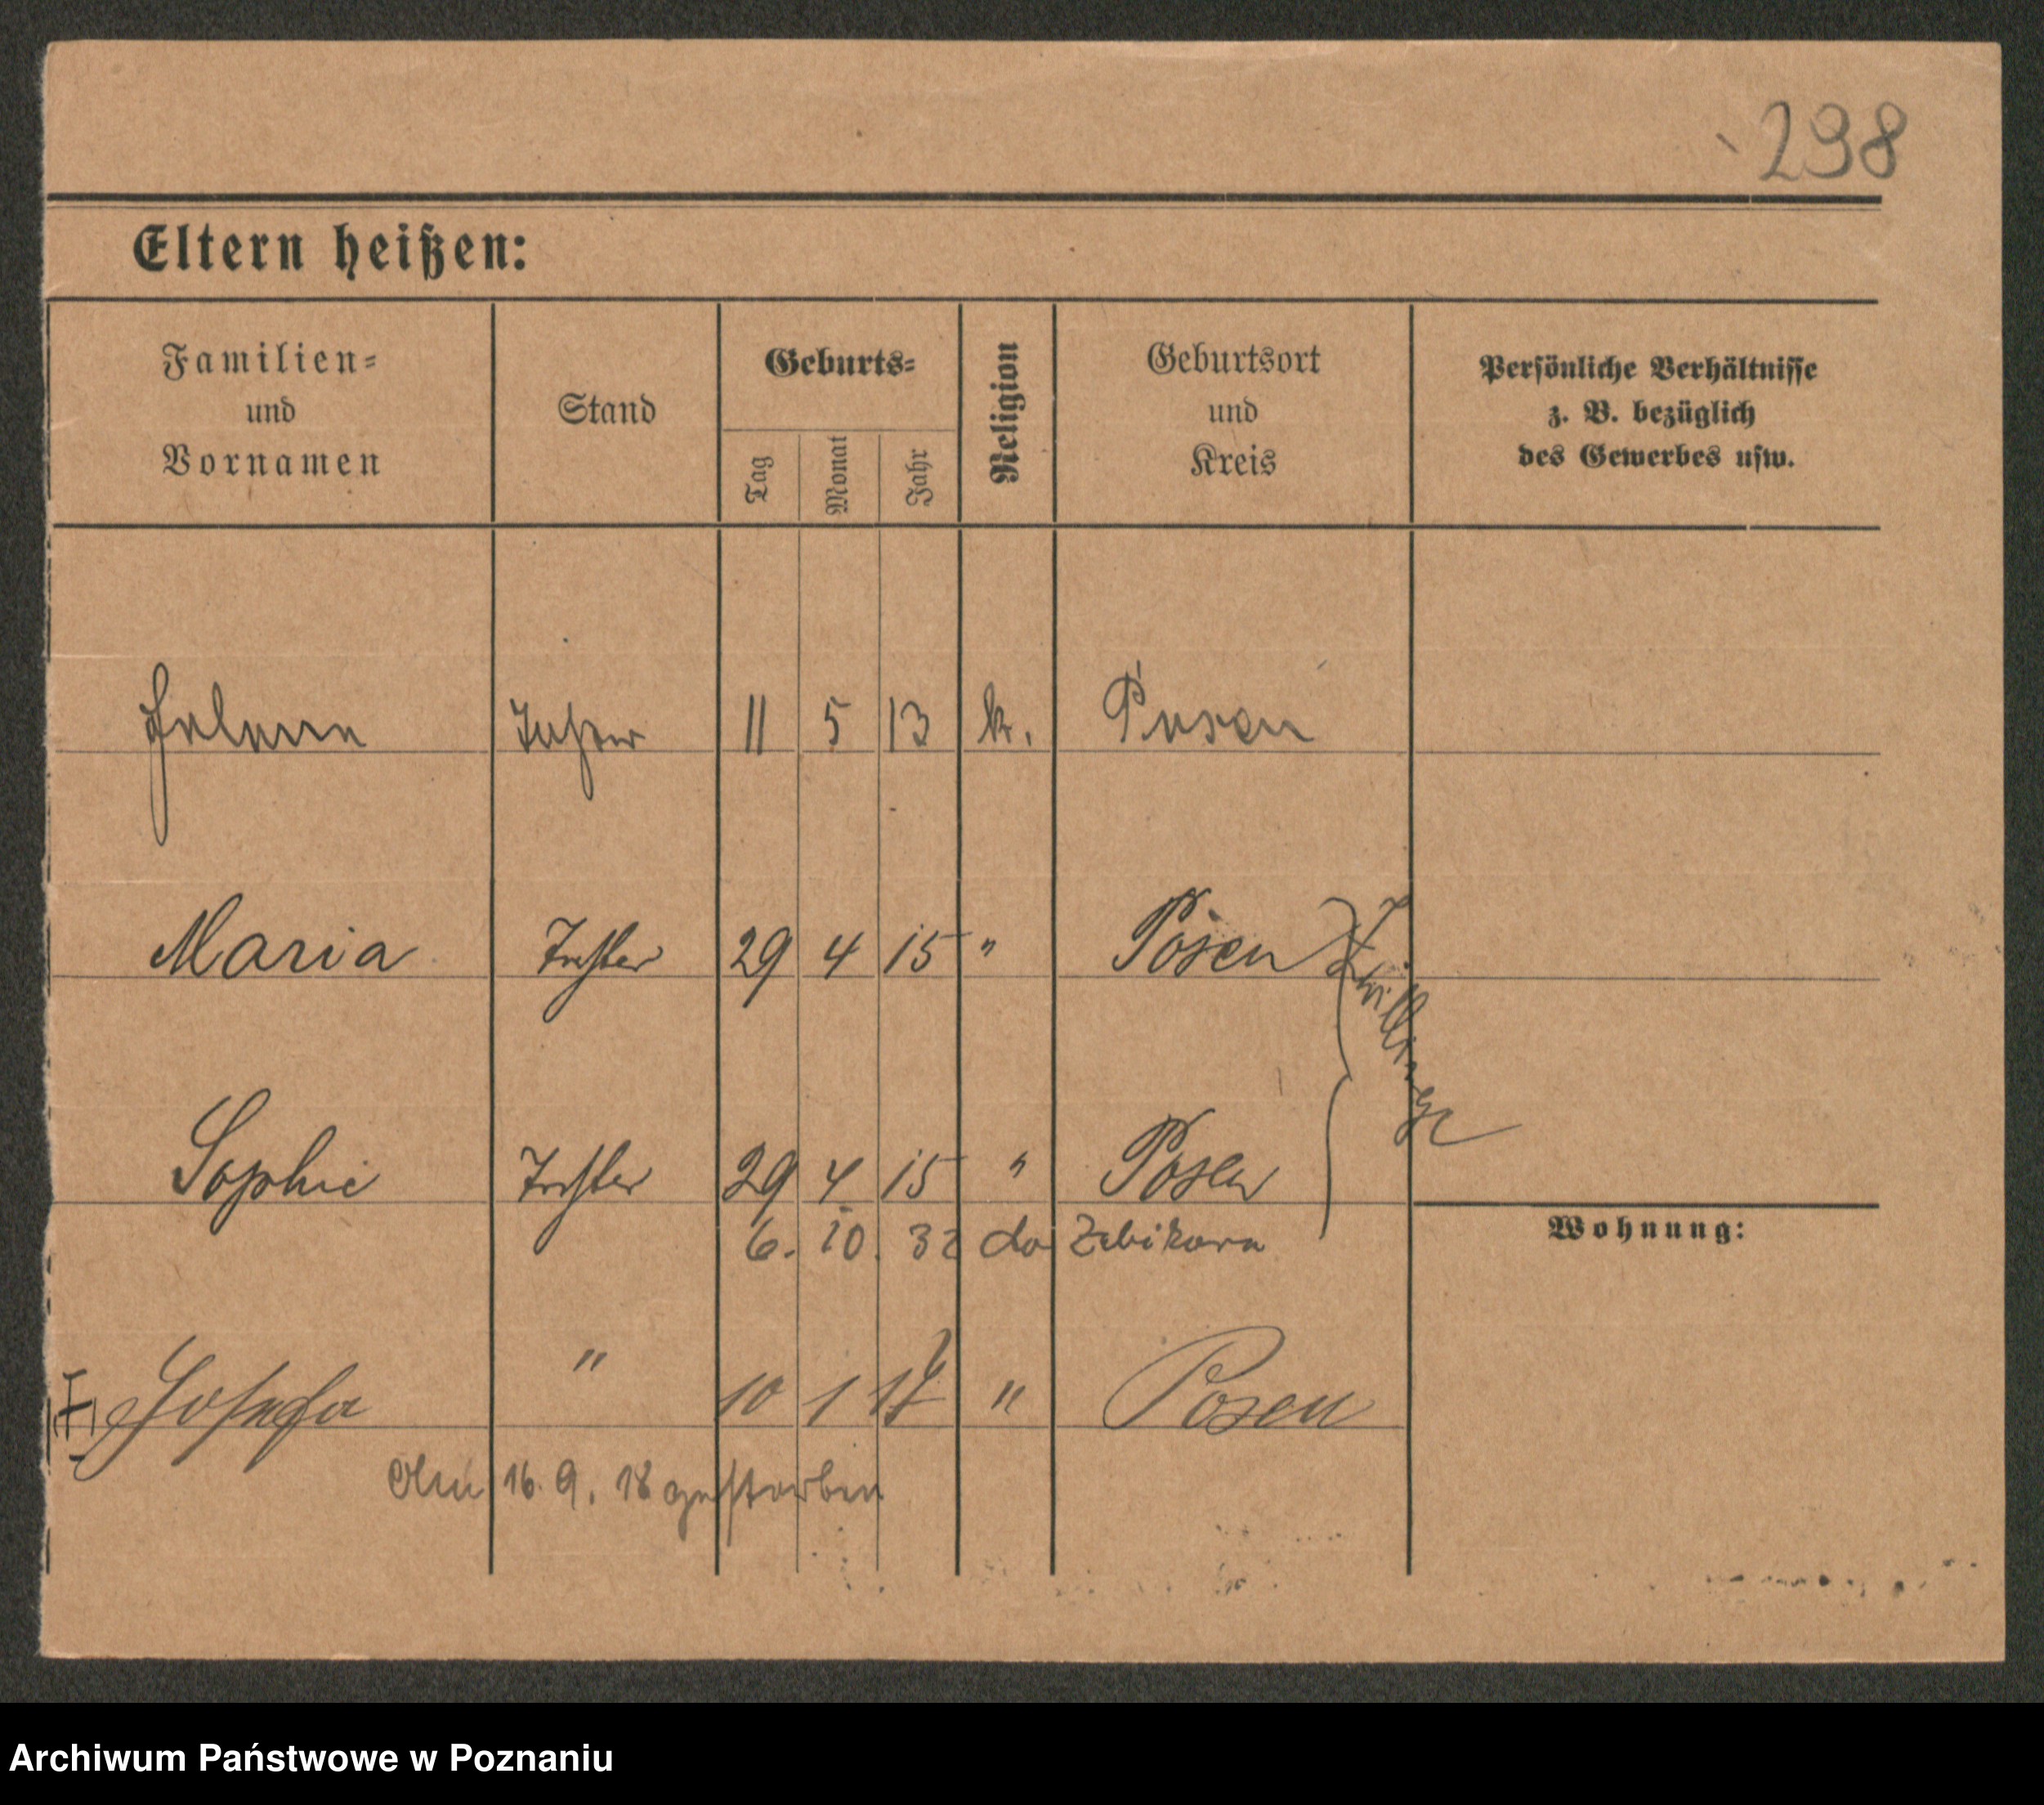 298
Eltern heißen:
Familien=
und
Vornamen
Stand
Geburts=
Tag
Monat
Jahr
Religion
Geburtsort
und
Kreis
Persönliche Verhältnisse
z. B. bezüglich
des Gewerbes usw.
Helena Tochter 11 5 13 k. Posen
Maria Tochter 29 4 15 " Posen
Zwillinge
Sophie Tochter 29 4 15 " Posen
6. 10. 32 do Zabikowo
Wohnung:
Josefa " 10 1 " Posen
Am 16. 9. 18 gestorben
Archiwum Państwowe w Poznaniu